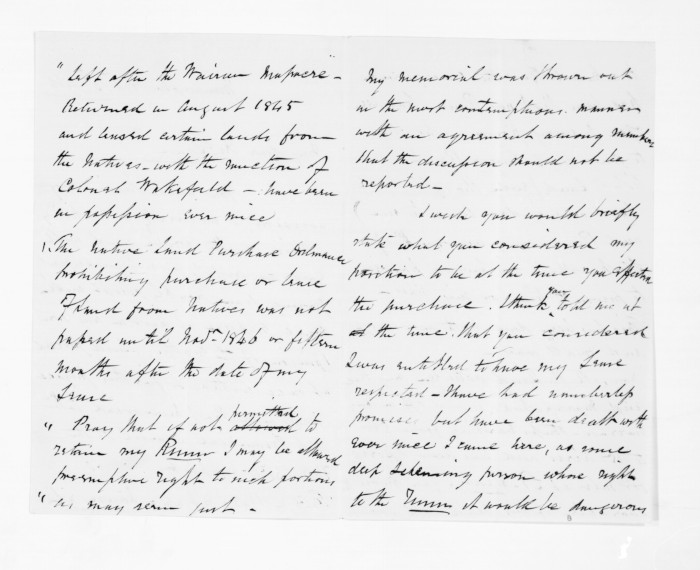 " Left after the Wairau Massacre –
Returned in August 1845
and leased certain lands from
the Natives – with the sanction of
Colonel Wakefield – have been
in possession ever since
1. The Native Land Purchase Ordinance
prohibiting purchase or lease
of land from Natives was not
passed until Novr 1846 or fifteen
months after the date of my
Lease
" Pray that if not allowed permitted to
retain my Runs I may be allowed
preemptive right to such portions
" as may seem just –
My memorial was thrown out
in the most contemptuous manner
with an agreement among members
that the discussion should not be
reported –
I wish you would briefly
state what you considered my
position to be at the time you effected
the purchase. I think you told me at
at the time that you considered
I was entitled to have my Lease
respected – I have had numberless
promises but have been dealt with
ever since I came here, as some
deep person whose right
to the Runs it would be dangerous